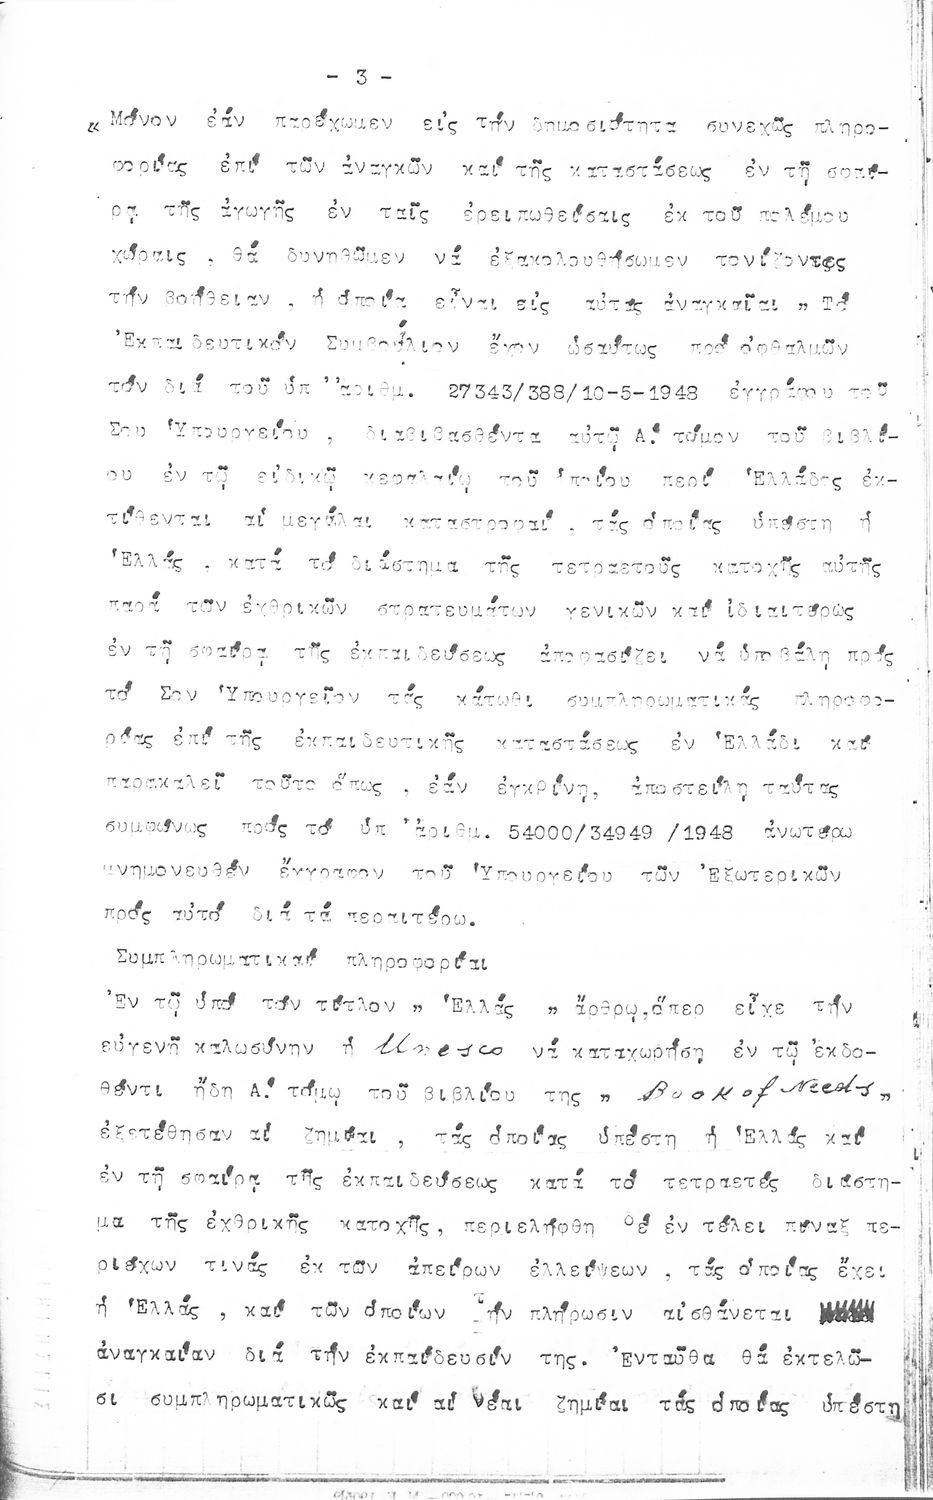 - 3 -
« Μόνον ἐάν παρέχωμεν εἰς τήν δημοσιότητα συνεχῶς πληρο-
φορίας ἐπί τῶν ἀναγκῶν καί τῆς καταστάσεως ἐν τῇ σφαί-
ρᾳ τῆς ἀγωγῆς ἐν ταῖς ἐρειπωθείσαις ἐκ τοῦ πολέμου
χώραις , θά δυνηθῶμεν νά ἐξακολουθήσωμεν τονίζοντες
τήν βοήθειαν , ἡ ὁποία εἶναι εἰς αὐτάς ἀναγκαῖαι „ Τό
Ἐκπαιδευτικόν Συμβούλιον ἔχον ὡσαύτως πρό ὀφθαλμῶν
τόν διά τοῦ ὑπ' ἀριθμ. 27343/388/10-5-1948 ἐγγράφου τοῦ
Σου Ὑπουργείου , διαβιβασθέντα αὐτῷ Α! τόμον τοῦ βιβλί-
ου ἐν τῷ εἰδικῷ κεφαλαίῳ τοῦ ὁποίου περί Ἑλλάδος ἐκ-
τίθενται αἱ μεγάλαι καταστροφαί , τάς ὁποίας ὑπέστη ἡ
Ἑλλάς , κατά τό διάστημα τῆς τετραετοῦς κατοχῆς αὐτῆς
παρά τῶν ἐχθρικῶν στρατευμάτων γενικῶν καί ἰδιαιτέρως
ἐν τῇ σφαίρᾳ τῆς ἐκπαιδεύσεως ἀποφασίζει νά ὑποβάλῃ πρός
τό Σον Ὑπουργεῖον τάς κάτωθι συμπληρωματικάς πληροφο-
ρίας ἐπί τῆς ἐκπαιδευτικῆς καταστάσεως ἐν Ἑλλάδι καί
παρακαλεῖ τοῦτο ὅπως , ἐάν ἐγκρίνῃ, ἀποστείλῃ ταύτας
συμφώνως πρός τό ὑπ' ἀριθμ. 54000/34949 /1948 ἀνωτέρω
μνημονευθέν ἔγγραφον τοῦ Ὑπουργείου τῶν Ἐξωτερικῶν
πρός αὐτό διά τά περαιτέρω.
Συμπληρωματικαί πληροφορίαι
Ἐν τῷ ὑπό τόν τίτλον „ Ἑλλάς „ ἄρθρῳ,ὅπερ εἶχε τήν
εὐγενῆ καλωσύνην ἡ Unesco νά καταχωρήσῃ ἐν τῷ ἐκδο-
θέντι ἤδη Α! τόμῳ τοῦ βιβλίου της „ Book of Needs „
ἐξετέθησαν αἱ ζημίαι , τάς ὁποίας ὑπέστη ἡ Ἑλλάς καί
ἐν τῇ σφαίρᾳ τῆς ἐκπαιδεύσεως κατά τό τετραετές διάστη-
μα τῆς ἐχθρικῆς κατοχῆς, περιελήφθη δέ ἐν τέλει πίναξ πε-
ριέχων τινάς ἐκ τῶν ἀπείρων ἐλλείψεων , τάς ὁποίας ἔχει
ἡ Ἑλλάς , καί τῶν ὁποίων τήν πλήρωσιν αἰσθάνεται
ἀναγκαίαν διά τήν ἐκπαίδευσίν της. Ἐνταῦθα θά ἐκτελῶ-
σι συμπληρωματικῶς καί αἱ νέαι ζημίαι τάς ὁποίας ὑπέστη